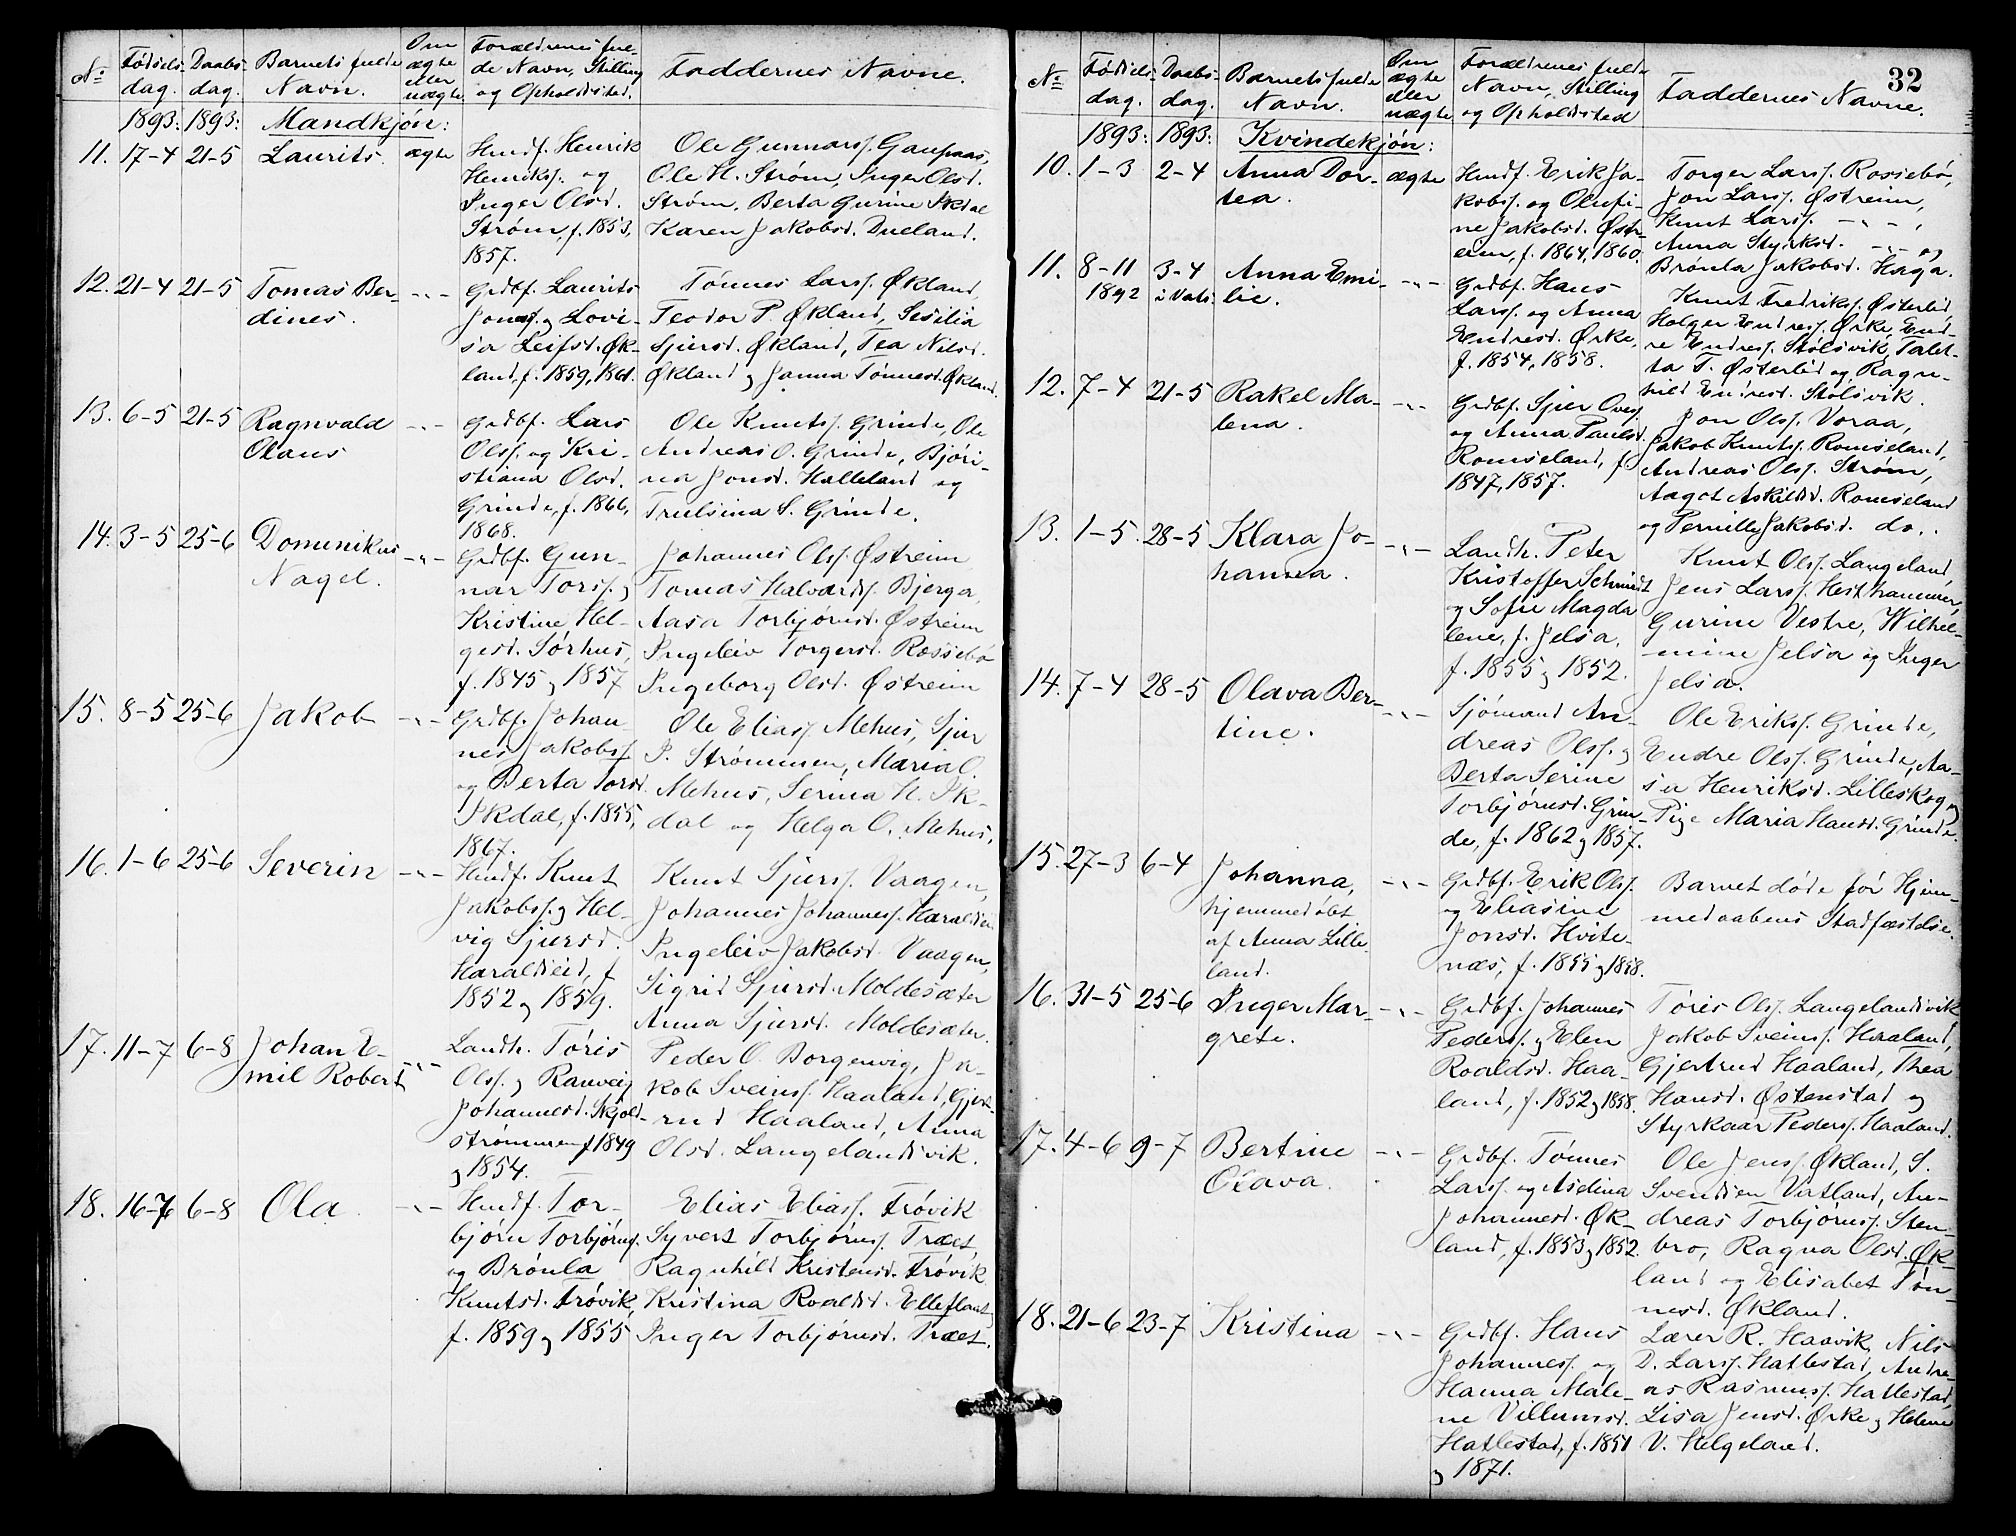 No
Fødsels-
dag.
Daabs-
dag.
Barnets fulde
Navn.
Om
ægte
eller
uægte
Forældrenes ful-
de Navn, Stilling
og Opholdsted.
Faddernes Navne.
1893: 1893: Mandkjøn:
11. 17-4 21-5 Laurits. ægte
Husmf. Henrik
Henriks. og
Inger Olsd.
Strøm, f. 1853,
1857.
Ole Gunnars. Gaupaas,
Ole H. Strøm, Inger Olsd.
Strøm, Berta Gurine Ikdal
Karen Jakobsd. Dueland.
12. 21-4 21-5 Tomas Ber-
dines.
-"-
Grdbf. Laurits
Jonas. og Lovi-
sa Leifsd. Øk-
land, f. 1859, 1861.
Tønnes Lars. Økland,
Teodor P. Økland, Sesilia
Sjursd. Økland, Tea Nilsd.
Økland og Janna Tønnesd. Økland.
13. 6-5 21-5 Ragnvald
Olaus
-"-
Grdbf. Lars
Ols. og Kri-
stiana Olsd.
Grinde, f. 1866,
1868.
Ole Knuts. Grinde, Ole
Andreas O. Grinde, Bjøri-
na Jonsd. Halleland og
Trulsina S. Grinde.
14. 3-5 25-6 Dominikus
Nagel.
-"-
Grdbf. Gun-
nar Tors. og
Kristine Hel-
gesd. Sørhus,
f. 1845 og 1857
Johannes Ols. Østreim
Tomas Halvards. Bjerga,
Aasa Torbjørnsd. Østreim
Ingeleiv Torgersd. Rossebø
Ingeborg Olsd. Østreim
15. 8-5 25-6 Jakob -"-
Grdbf. Johan-
nes Jakobs.
og Berta Torsd.
Ikdal, f. 1855,
1867.
Ole Elias. Mehus, Sjur
P. Strømmen, Maria O.
Mehus, Serina H. Ik-
dal og Helga O. Mehus.
16. 1-6 25-6 Severin -"-
Husmf. Knut
Jakobs. og Hel-
vig Sjursd.
Haraldseid, f
1852 og 1859.
Knut Sjurs. Vaagen,
Johannes Johannes. Haraldseid
Ingeleiv Jakobsd. Vaagen,
Sigrid Sjursd. Moldesæter
Anna Sjursd. Moldesæter.
17. 11-7 6-8 Johan E-
mil Robert
-"-
Landh. Tøris
Ols. og Ranveig
Johannesd. Skjold-
strømmen f 1849
og 1854.
Peder O. Borgenvig, Ja-
kob Sveins. Haaland, Gjert-
rud Haaland, Anna
Olsd. Langelandsvik.
18. 16-7 6-8 Ola -"-
Husmf. Tor-
bjørn Torbjørns.
og Brønla
Knutsd. Frøvik,
f. 1859 og 1855
Elias Elias. Frøvik
Syvert Torbjørns. Træet,
Ragnhild Kristensd. Frøvik,
Kristina Roaldsd. Elleflaat,
Inger Torbjørnsd. Træet.
32
No
Fødsels-
dag.
Daabs-
dag.
Barnets fulde
Navn.
Om
ægte
eller
uægte
Forældrenes fulde
Navn, Stilling
og Opholdsted
Faddernes Navne.
1893: 1893: Kvindekjøn:
10. 1-3 2-4 Anna Dor-
tea.
ægte
Husmf. Erik Ja-
kobs. og Olufi-
ne Jakobsd. Øst-
reim, f. 1864, 1860.
Torger Lars. Rossebø,
Jon Lars. Østreim,
Knut Lars. -"-,
Anna Styrksd. -"- og
Brønla Jakobsd. Haga.
11. 8-11
1892
3-4
i Vats.
Anna Emi-
lie.
-"-
Grdbf. Hans
Lars. og Anna
Endresd. Ørke,
f. 1854, 1858.
Knut Fredriks. Østerlid,
Holger Endres. Ørke, End-
re Endres. Stølsvik, Talet-
ta T. Østerlid og Ragn-
hild Endresd. Stølsvik.
12. 7-4 21-5 Rakel Ma-
lena.
-"-
Grdbf. Sjur Oves.
og Anna Paulsd.
Romseland, f.
1847, 1857.
Jon Ols. Voraa,
Jakob Knuts. Romseland,
Andreas Ols. Strøm,
Aagot Askildsd. Romseland
og Pernille Jakobsd. do.
13. 1-5 28-5 Klara Jo-
hanna.
-"-
Landh. Peter
Kristoffer Schmidt
og Sofie Magda
lene, f. Jelsa.
f. 1855 og 1852.
Knut Ols. Langeland,
Jens Lars. Hesthammer,
Gurine Vestre, Wilhel-
mine Jelsa og Inger
Jelsa.
14. 7-4 28-5 Olava Ber-
tine.
-"-
Sjømand An-
dreas Ols. og
Berta Serine
Torbjørnsd. Grin-
de, f. 1862 og 1857.
Ole Eriks. Grinde,
Endre Ols. Grinde, Aa-
sa Henriksd. Lilleskog og
Pige Maria Hansd. Grinde.
15. 27-3 6-4 Johanna,
hjemmedøbt
af Anna Lille-
land.
-"-
Grdbf. Erik Ols.
og Eliasine
Jonsd. Hvite-
næs, f. 1855 og 1858.
Barnet døde før Hjem-
medaabens Stadfæstelse.
16. 31-5 25-6 Inger Mar-
grete.
-"-
Grdbf. Johannes
Peders. og Elen
Roaldsd. Haa-
land, f. 1852 og 1858.
Tøris Ols. Langelandsvik
Jakob Sveins. Haaland,
Gjertrud Haaland, Thea
Hansd. Østenstad og
Styrkaar Peders. Haaland.
17. 4-6 9-7 Bertine
Olava.
-"-
Grdbf. Tønnes
Lars. og Aselina
Johannesd. Øk-
land, f. 1853 og 1852.
Ole Jens. Økland, S.
Svendsen Vatland, An-
dreas Torbjørns. Sten-
bro, Ragna Olsd. Øk-
land og Elisabet Tøn-
nesd. Økland.
18. 21-6 23-7 Kristina -"-
Grdbf. Hans
Johannes. og
Hanna Male-
ne Villumsd.
Hatlestad, f. 1851
og 1871.
Lærer R. Haavik, Nils
D. Lars. Hatlestad, Andre-
as Rasmus. Hatlestad,
Lisa Jensd. Ørke og Helene
V. Helgeland.